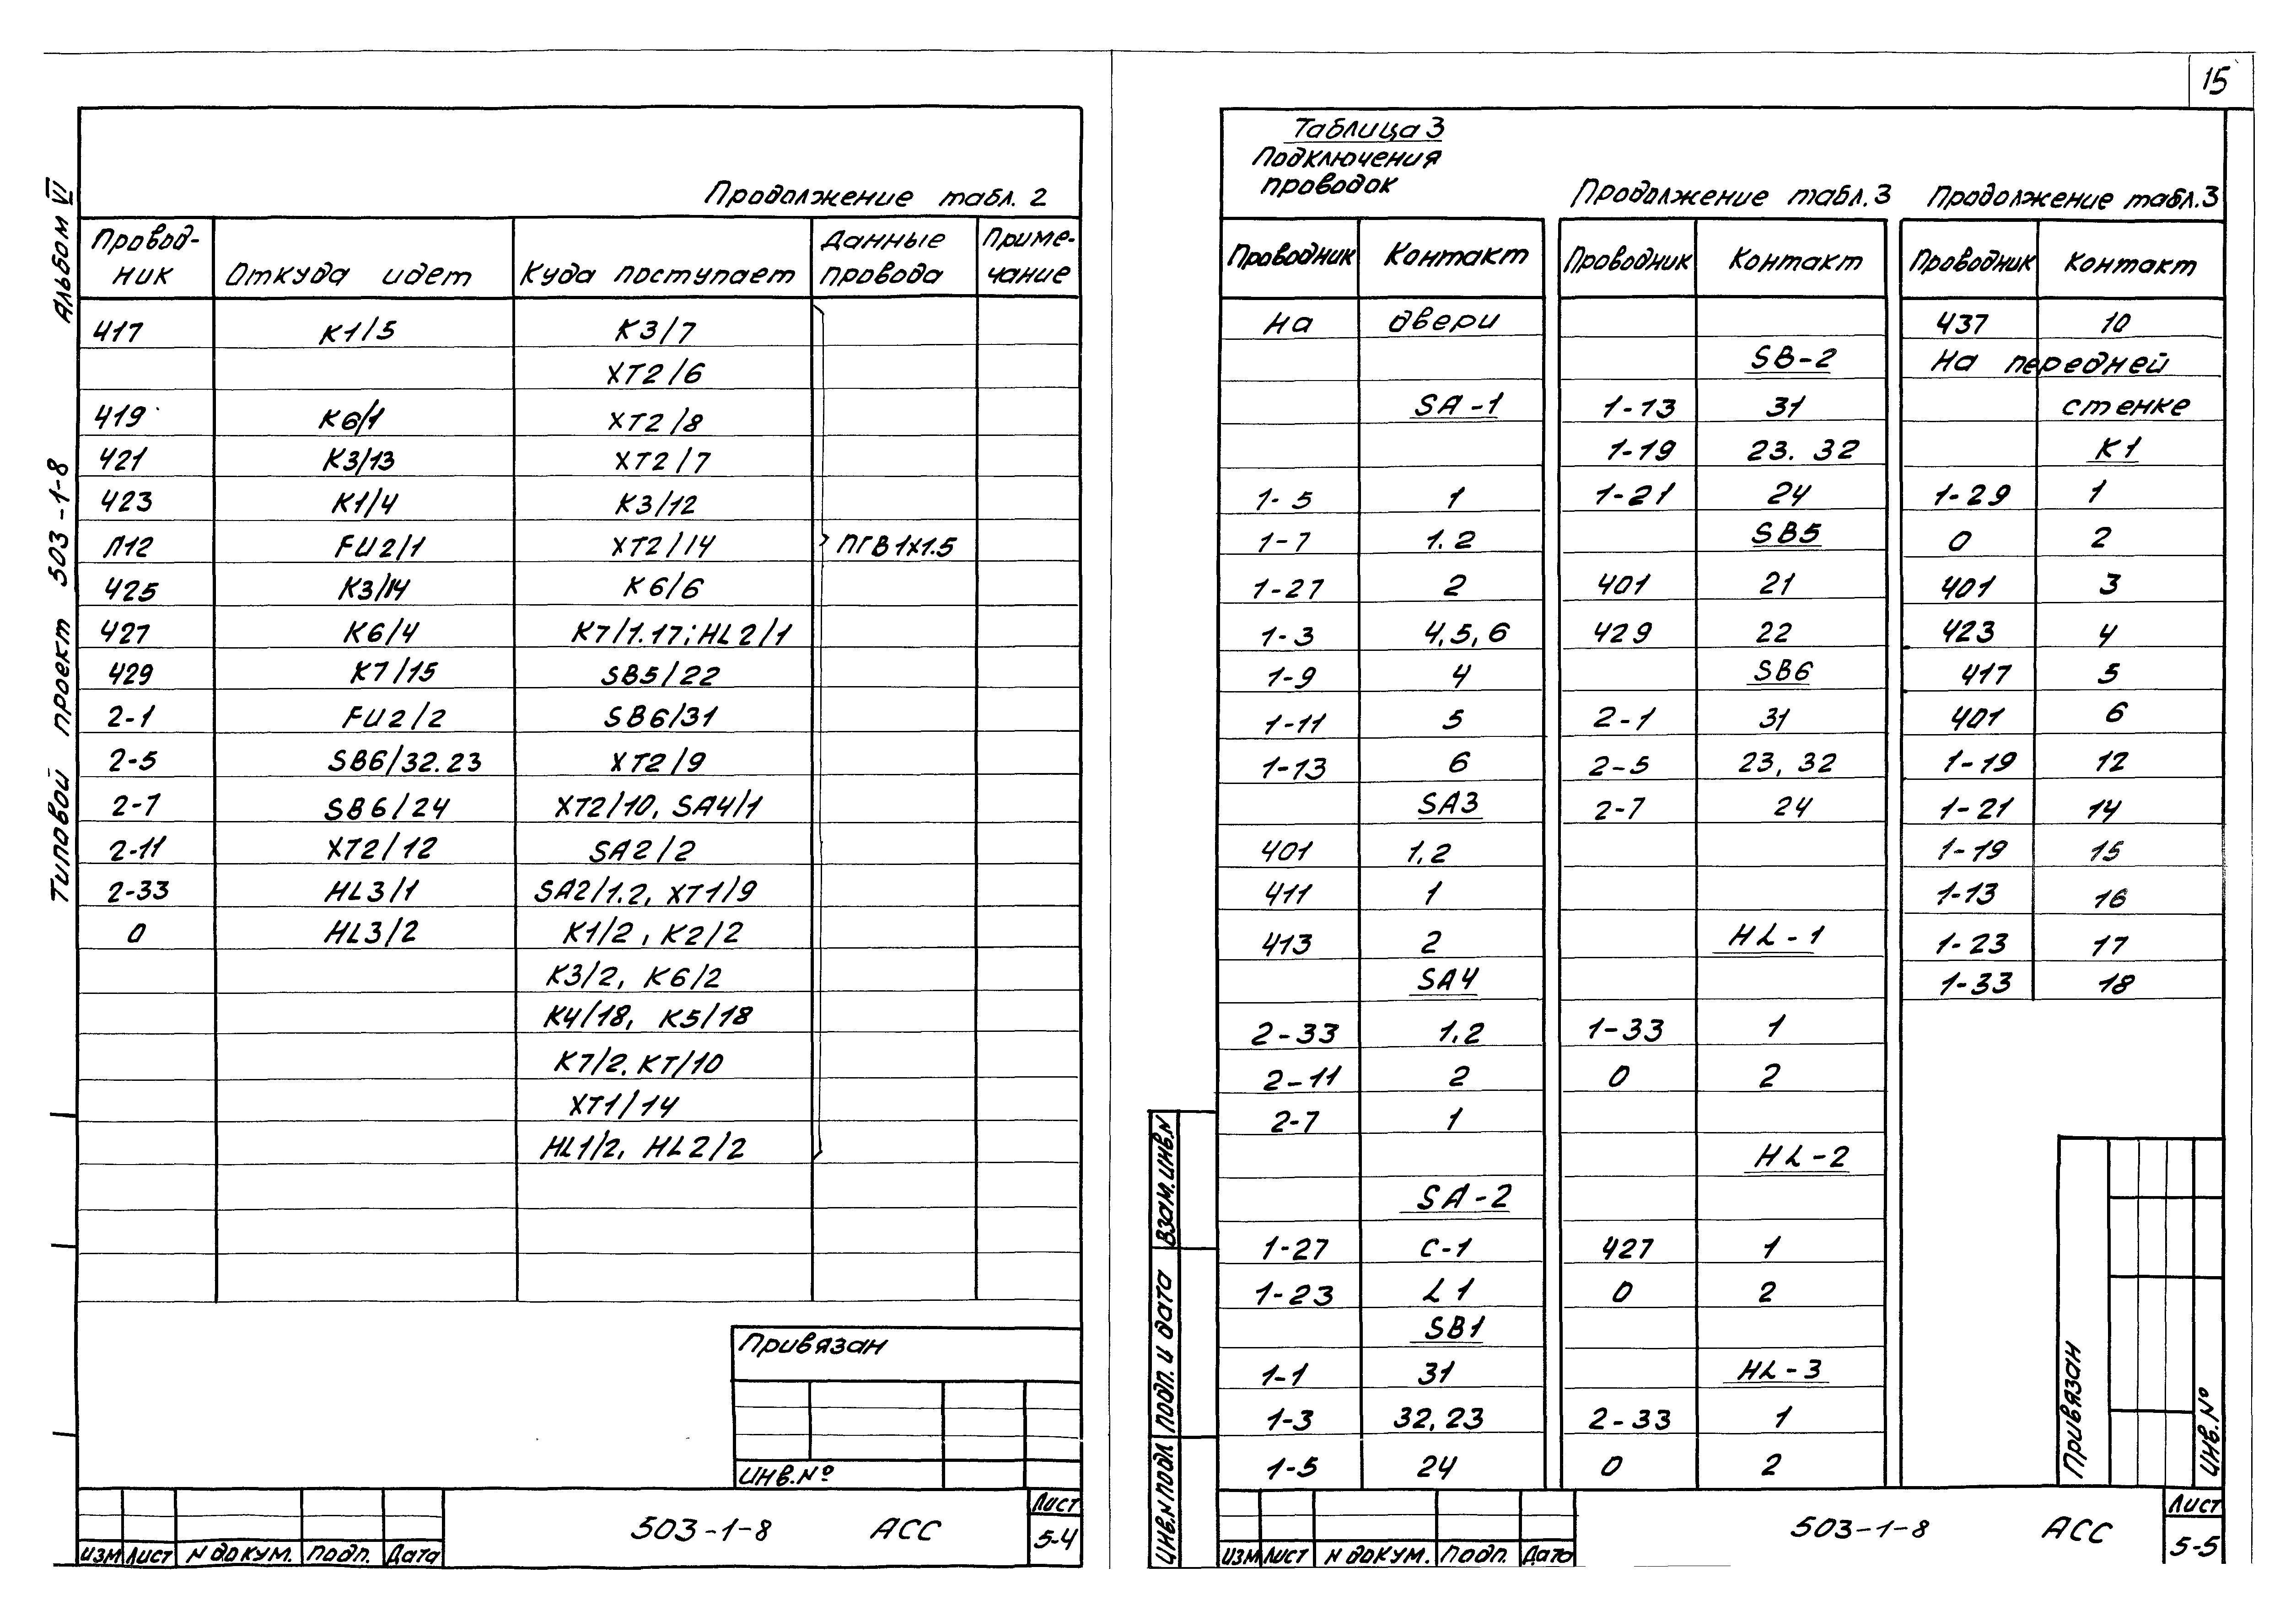 15
Альбом VI
Типовой проект 503-1-8
Продолжение табл. 2
Провод-ник Откуда идет Куда поступает Данные провода Приме-чание
417 К1/5 К3/7
ХТ2/6
419 К6/1 ХТ2/8
421 К3/13 ХТ2/7
423 К1/4 К3/12
Л12 FU2/1 ХТ2/14 ПГВ1х1.5
425 К3/14 К6/6
427 К6/4 К7/1.17; HL2/1
429 К7/15 SB5/22
2-1 FU2/2 SB6/31
2-5 SB6/32.23 ХТ2/9
2-7 SB6/24 ХТ2/10, SA4/1
2-11 ХТ2/12 SA2/2
2-33 HL3/1 SA2/1.2, ХТ1/9
0 HL3/2 К1/2, К2/2
К3/2, К6/2
К4/18, К5/18
К7/2, КТ/10
ХТ1/14
HL1/2, HL2/2
Привязан
Инв.№
Изм Лист N докум. Подп. Дата
503-1-8 АСС
Лист
5-4
Таблица 3
Подключения
проводок
Проводник Контакт
На двери
SA-1
1-5 1
1-7 1.2
1-27 2
1-3 4,5,6
1-9 4
1-11 5
1-13 6
SA3
401 1,2
411 1
413 2
SA4
2-33 1,2
2-11 2
2-7 1
SA-2
1-27 С-1
1-23 L1
SB1
1-1 31
1-3 32,23
1-5 24
Продолжение табл.3
Проводник Контакт
SB-2
1-13 31
1-19 23. 32
1-21 24
SB5
401 21
429 22
SB6
2-1 31
2-5 23, 32
2-7 24
HL-1
1-33 1
0 2
HL-2
427 1
0 2
HL-3
2-33 1
0 2
Продолжение табл.3
Проводник Контакт
437 10
На передней
стенке
К1
1-29 1
0 2
401 3
423 4
417 5
401 6
1-19 12
1-21 14
1-19 15
1-13 16
1-23 17
1-33 18
Привязан
Инв.№
Взам.инв.N
Подп. и дата
Инв.N подл
Изм Лист N докум. Подп. Дата
503-1-8 АСС
Лист
5-5